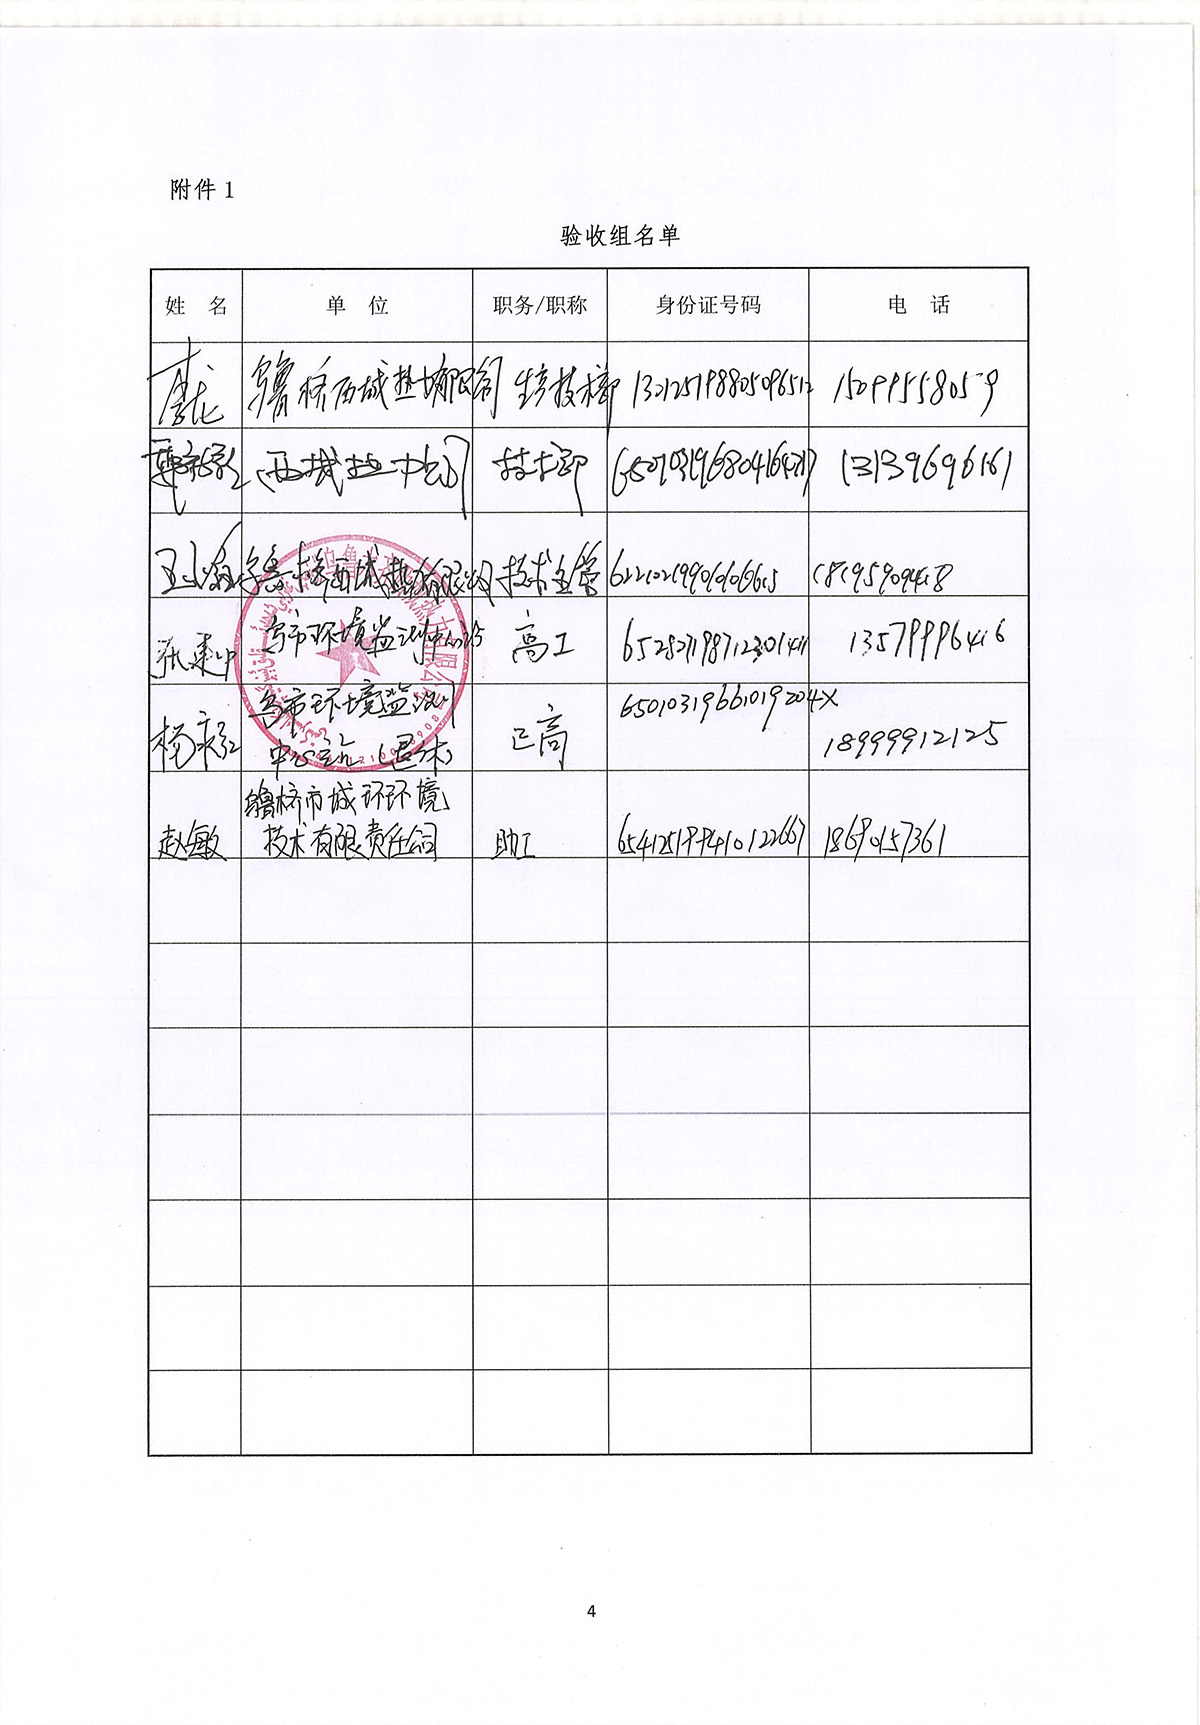 附件1
验收组名单
姓 名 单 位 职务/职称 身份证号码 电 话
李龙 乌鲁木齐西城热力有限公司 生产技术部 130125198805096512 15099558059
西城热力 技术部 13139696161
乌鲁木齐西城热力有限公司 技术主管 18195909418
张建中 乌市环境监测中心站 高工 13579996416
乌市环境监测
杨 中心站(退休) 正高 65010319661019204X
18999912125
乌鲁木齐市城环环境
赵敏 技术有限责任公司 助工 654125199410122667 18690157361
4